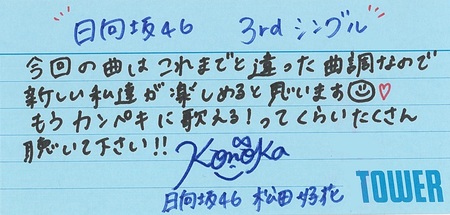 日向坂46 3rdシングル
今回の曲はこれまでと違った曲調なので
新しい私達が楽しめると思います☺♡
もうカンペキに歌える!ってくらいたくさん
聴いて下さい!!
Konoka
日向坂46 松田好花
TOWER